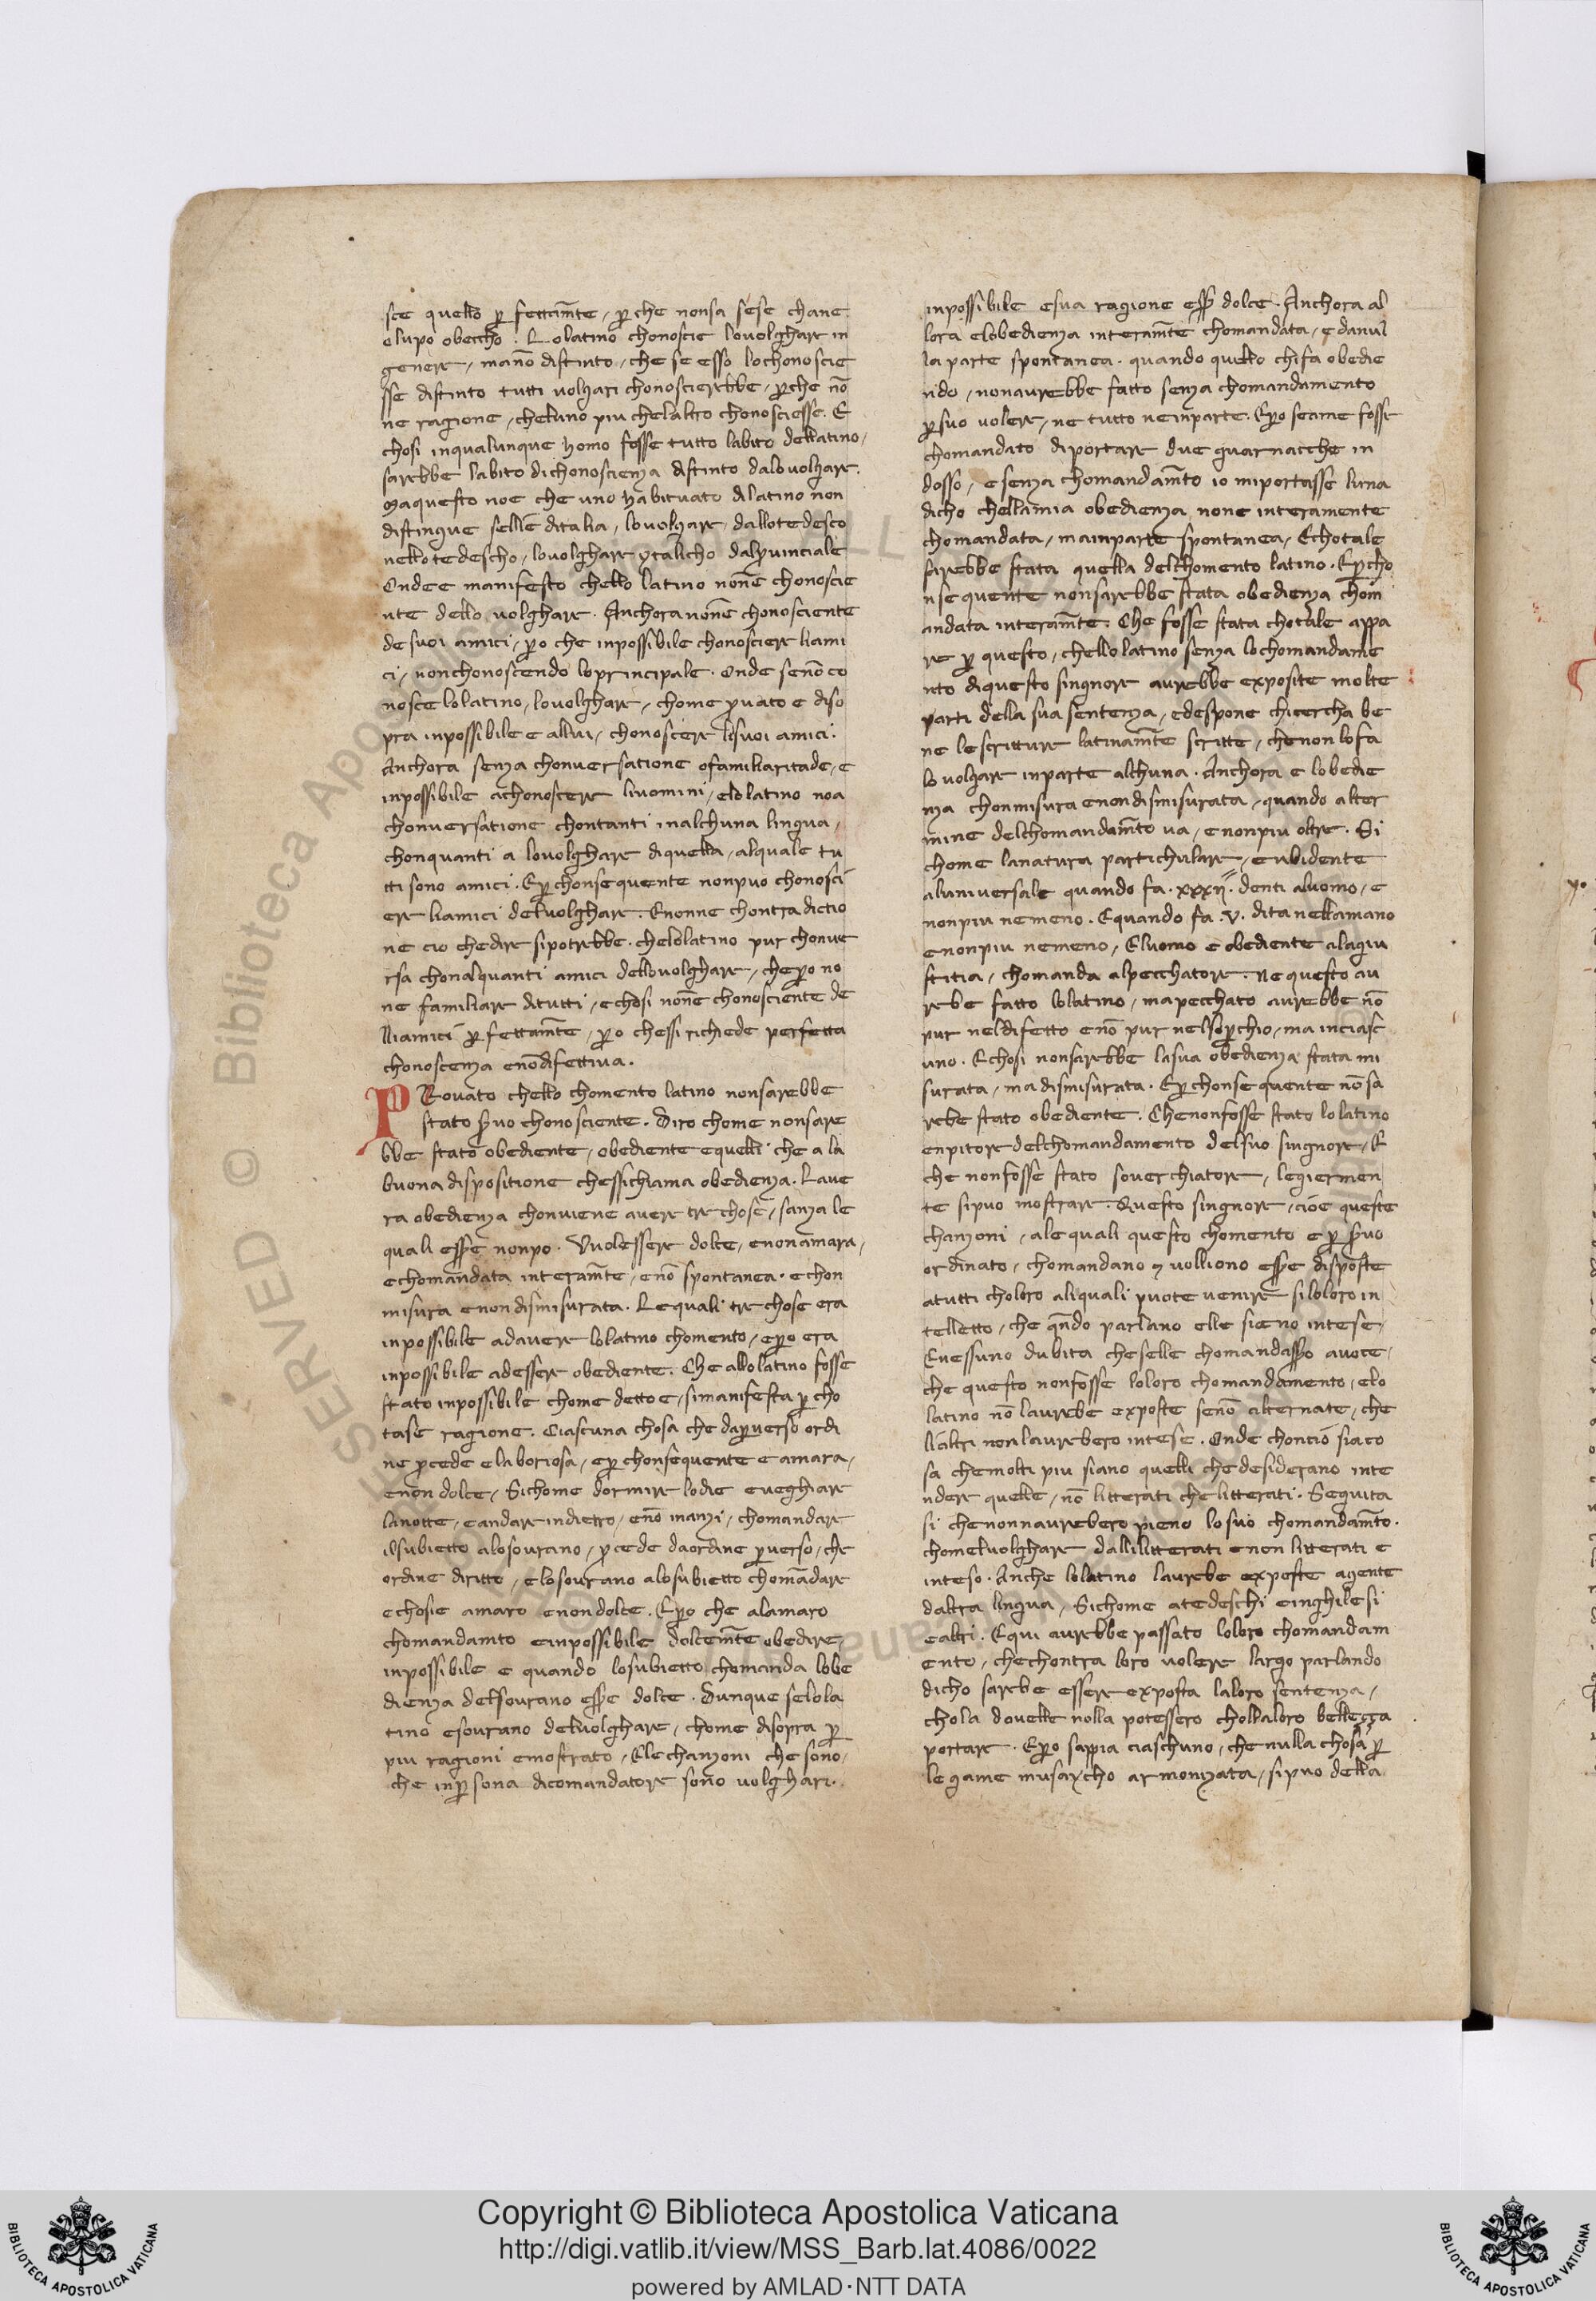 sce quello ꝑ fettam̄te / ꝑ che nonsa sese chane
olupo obeccho . Lolatino chonoscie louolghare in
genere / manō distinto / che se esso lochonoscie
sse distinto tutti uolgari chonoscierebbe / ꝑche nō
ne ragione / cheluno piu chelaltro chonosciesse . E
chosi inqualunque homo fosse tutto labito dellatino /
sarebbe labito dichonoscienza distinto dalouolgare .
Maquesto noe che uno habituato dilatino non
distingue sellē ditalia / louolgare / dallotedesco
nellotedescho / louolghare ytalicho dalꝓuinciale
Ondee manifesto chello latino nonē chonoscie
nte dello uolghare . Anchora nonē chonosciente
de suoi amici / ꝑo che inpossibile chonosciere liami
ci / nonchonoscendo loprincipale . Onde senō co
nosce lolatino / louolghare / chome ꝓuato e diso
pra inpossibile e allui / chonoscere lisuoi amici .
Anchora senza chonuersatione ofamiliaritade / e
inpossibile achonoscere liuomini / elolatino noa
chonuersatione chontanti inalchuna lingua /
chonquanti a louolghare diquella / alquale tu
tti sono amici . Eꝑ chonsequente nonpuo chonosci
ere liamici deluolghare . Enonne chontradictio
ne cio chedire sipotrebbe . chelolatino pur chonue
rsa chonalquanti amici dellouolghare / cheꝑo no
ne familiare ditutti / echosi nonē chonosciente de
lliamici ꝑ fettam̄te / ꝑo chessi richiede perfetta
chonoscenza enōdifettiua .
PRouato chello chomento latino nonsarebbe
stato s̄uo chonosciente . Diro chome nonsare
bbe stato obediente / obediente equelli che a la
buona dispositione chessichiama obedienza . Laue
ra obedienza chonuiene auere tre chose / sanza le
quali esse̅ nonpo . Vuolessere dolce / enonamara /
echomandata interam̄te / enō spontanea . echon
misura enondismisurata . Lequali tre chose era
inpossibile adauere lolatino chomento / eꝑo era
inpossibile adessere obediente . Che allolatino fosse
stato inpossibile chome dettoe / simanifesta ꝑ cho
tale ragione . Ciascuna chosa che daꝑuerso ordi
ne ꝓcede elaboriosa / eꝑ chonsequente e amara /
enon dolce / Sichome dormire lodie eueghiare
lanotte / eandare indietro / enō inanzi / chomandare
ilsubietto alosourano / ꝓcede daordine ꝑuerso / che
ordine diritto / elosourano alosubietto chomādare
echosie amaro enondolce . Eꝑo che alamaro
chomandamto einpossibile dolcem̄te obedire /
inpossibile e quando losubietto chomanda lobe
dienza delsourano esse̅ dolce . Dunque selola
tino esourano deluolghare / chome disopra ꝑ
piu ragioni emostrato / Elechanzoni che sono /
che inꝑ sona dicomandatore sono uolghari .
inpossibile esua ragione esse̅ dolce . Anchora al
lora elobedienza interam̄te chomandata / edanul
la parte spontanea . quando quello chifa obedie
ndo / nonaurebbe fatto senza chomandamento
ꝑsuo uolere / ne tutto neinparte . Eꝑo seame fosse
chomandato diportare due guarnacche in
dosso / esenza chomandam̄to io miportasse luna
dicho chellamia obedienza none interamente
chomandata / mainparte spontanea / Echotale
sarebbe stata quella delchomento latino . Eꝑcho
nsequente nonsarebbe stata obedienza chom
andata interam̄te . Che fosse stata chotale appa
re ꝑ questo / chellolatino senza lochomandame
nto diquesto singnore aurebbe exposite molte
parti della sua sentenza / edespone chicercha be
ne lescritture latinam̄te scritte / chenonlofa
lo uolgare inparte alchuna . Anchora e lobedie
nza chonmisura enondismisurata / quando alter
mine delchomandam̄to ua / enonpiu oltre . Si
chome lanatura partichulare / eubidente
aluniuersale quando fa . xxxij . denti aluomo / e
nonpiu nemeno . Equando fa . v . dita nellamano
enonpiu nemeno / Eluomo e obediente alagiu
stitia / chomanda alpecchatore . Ne questo au
rebe fatto lolatino / mapecchato aurebbe nō
pur neldifetto enō pur nelsoꝑchio / ma inciasc
uno . Echosi nonsarebbe lasua obedienza stata mi
surata / ma dismisurata . Eꝑ chonsequente nōsa
rebe stato obediente . Chenonfosse stato lolatino
enpitore delchomandamento delsuo singnore / E
che nonfosse stato souerchiatore / legiermen
te sipuo mostrare . Questo singnore / cioe queste
chanzoni / alequali questo chomento e ꝑ s̄uo
ordinato / chomandano ⁊ uolliono esse̅ disposte
atutti choloro aliquali puote uenire siloloro in
telletto / che qn̄do parlano elle sieno intese /
Enessuno dubita cheselle chomandasso̅ auoce /
che questo nonfosse loloro chomandamento / elo
latino nō laurebe exposte senō alternate / che
llaltri nonlaurebero intese . Onde chonciō siaco
sa chemolti piu siano quelli chedesiderano inte
ndere quelle / nō litterati che litterati . Sequita
si chenonnaurebero pieno losuo chomandam̄to .
chomeluolghare dallilitterati enon litterati e
inteso . Anche lolatino laurebe exposte agente
daltra lingua / Sichome atedeschi einghilesi
ealtri . Equi aurebbe passato loloro chomandam
ento / chechontra loro uolere largo parlando
dicho sarebe essere exposta laloro sentenza /
chola douelle nolla potessero cholLaloro bellecça
portare . Eꝑo sappia ciaschuno / che nulla chosa ꝑ
legame musaycho armonizata / sipuo della
Copyright © Biblioteca Apostolica Vaticana
http://digi.vatlib.it/view/MSS_Barb.lat.4086/0022
powered by AMLAD·NTT DATA
BIBLIOTECA APOSTOLICA VATICANA
BIBLIOTECA APOSTOLICA VATICANA